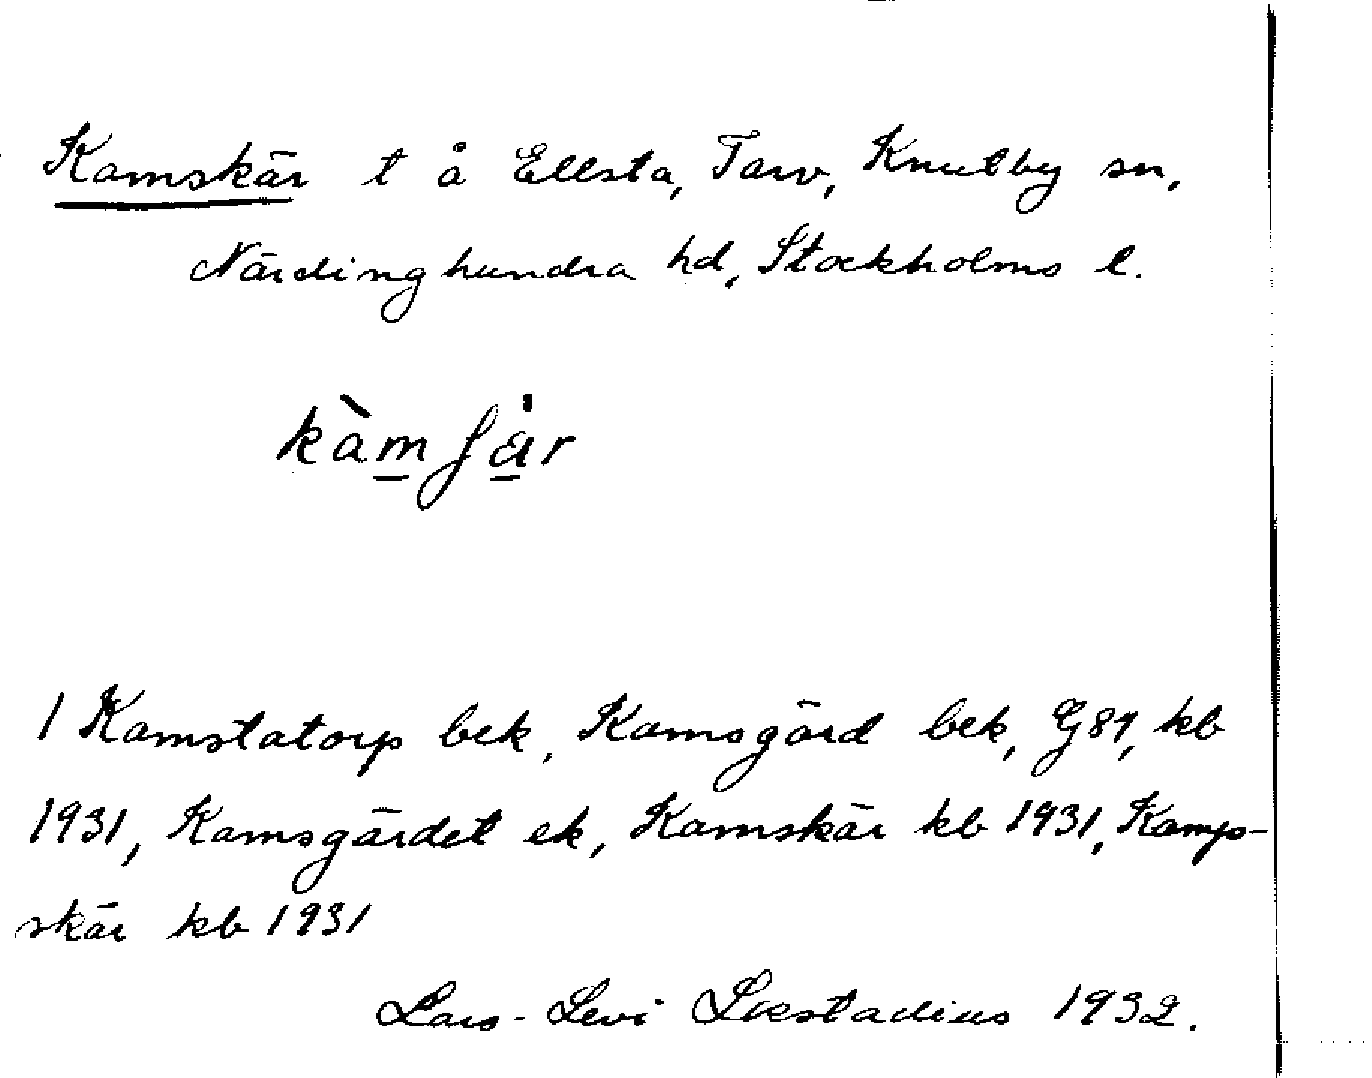 Kamskär t å Ellsta, Tarv, Knutby sn,
Närdinghundra hd, Stockholms l.
kàm̲ʃä̲̀r
1 Kamstatorp bek, Kamsgärd bek, G87, kb
1931, Kamsgärdet ek, Kamskär kb 1931, Kamp-
skär kb 1931
Lars-Levi Læstadius 1932.